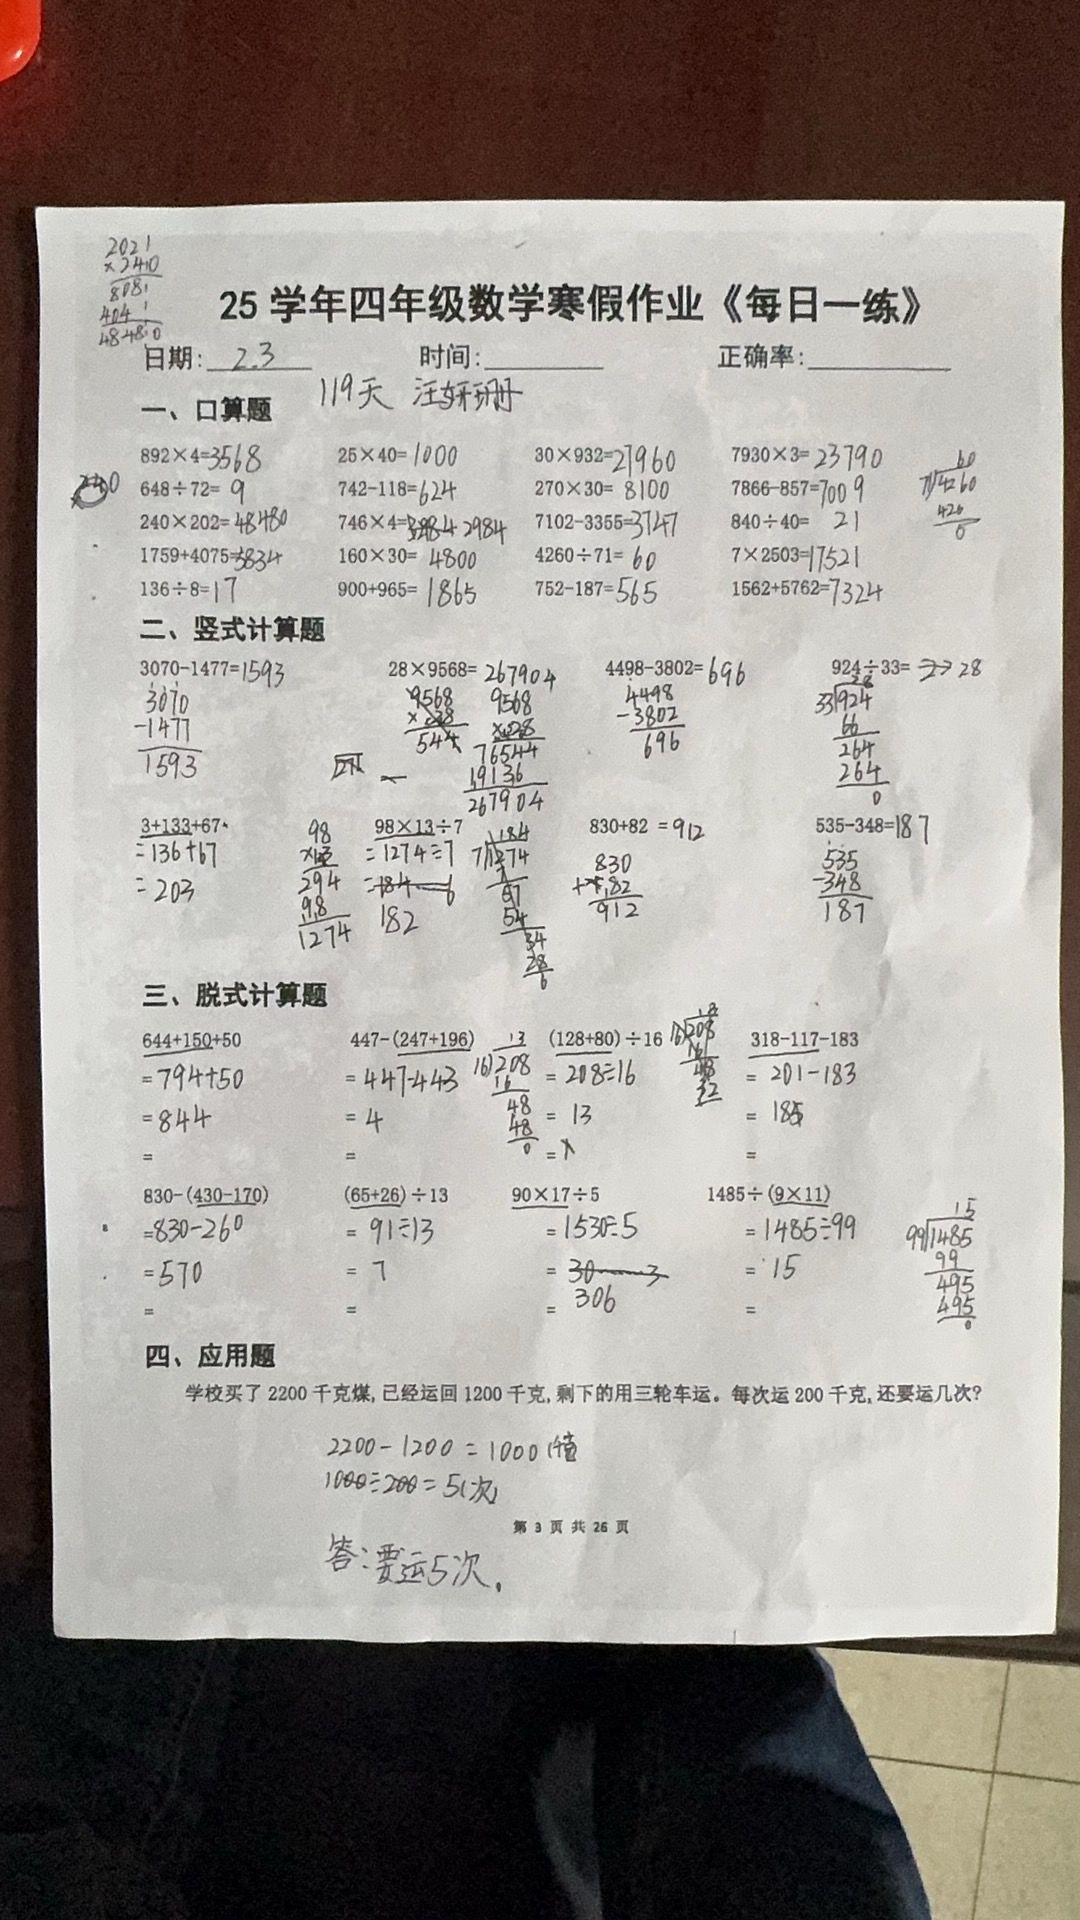 2021
×240
8081
404 1
48480
25 学年四年级数学寒假作业《每日一练》
日期: 2.3 时间: 正确率:
119天 汪妍珊
一、口算题
892×4=3568 25×40=1000 30×932=27960 7930×3=23790
648÷72=9 742-118=624 270×30=8100 7866-857=7009
240×202=48480 746×4=2984 7102-3355=3747 840÷40=21
1759+4075=5834 160×30=4800 4260÷71=60 7×2503=17521
136÷8=17 900+965=1865 752-187=565 1562+5762=7324
60
71 4260
426
0
二、竖式计算题
3070-1477=1593 28×9568=267904 4498-3802=696 924÷33=28
3070
-1477
1593
9568
×28
544
9568
×28
76544
19136
267904
4498
-3802
696
28
33 924
66
264
264
0
3+133+67 98×13÷7 830+82 =912 535-348=187
=136+67
=203
98
×13
294
98
1274
=1274÷7
=184……6
182
184
7 1274
7
57
54
34
28
6
830
+82
912
535
-348
187
三、脱式计算题
644+150+50 447-(247+196) (128+80)÷16 318-117-183
=794+50 =447-443 =208÷16 =201-183
=844 =4 =13 =185
= = = =
13
16 208
16
48
48
0
16 208
16
48
32
830-(430-170) (65+26)÷13 90×17÷5 1485÷(9×11)
=830-260 =91÷13 =1530÷5 =1485÷99
=570 =7 =30……3 =15
= = =306 =
15
99 1485
99
495
495
0
四、应用题
学校买了 2200 千克煤,已经运回 1200 千克,剩下的用三轮车运。每次运 200 千克,还要运几次?
2200-1200=1000
1000÷200=5(次)
第 3 页 共 26 页
答:要运5次。